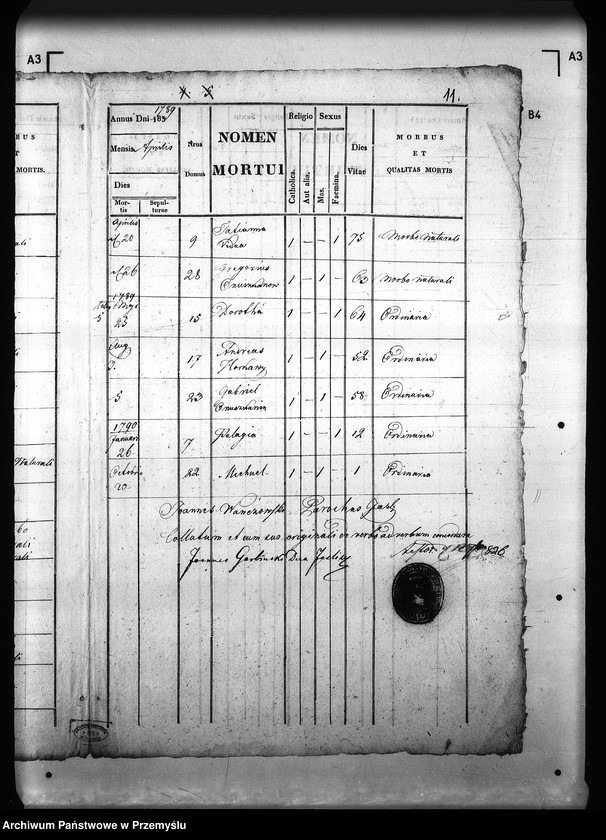 A3
A3
B4
11.
Annus Dni 183 1789
Mensis Aprilis
Dies
Mortis
Sepulturae
Nrus Domus
NOMEN
MORTUI
Religio
Catholica.
Aut alia.
Sexus
Mas.
Faemina.
Dies Vitae
MORBUS
ET
QUALITAS MORTIS
MORTIS.
Aprilis
20 9 Tatianna 1 – – 1 75 Morbo naturali
Vidua
26 28 Gregorius 1 – 1 – 63 Morbo naturali
1789
23 15 Dorothea 1 – – 1 64 Ordinaria
Aug.
3. 17 Andreas 1 – 1 – 52 Ordinaria
5 23 Gabriel 1 – 1 – 58 Ordinaria
1790
Januar
26 7 Pelagia 1 – – 1 12 Ordinaria
Octobris
20 22 Michael 1 – 1 – 1 Ordinaria
Joannes Parochus
Collatum et cum suo originali de verbo ad verbum concordare
testor
Joannes
Archiwum Państwowe w Przemyślu